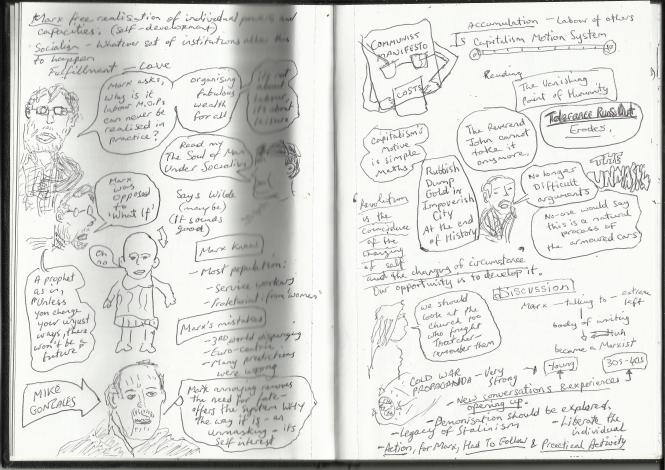 Marx free realisation of individual powers and
capacities. (self-development)
Socialism - Whatever set of institutions allow this
to happen
Fulfillment - Love
Marx asks,
why is it
never be
realised in
practice?
organising
fabulous
wealth
for all
it's not
about
labour
it's about
leisure
Read my
The Soul of Man
Under Socialism
Marx
was
opposed
to
'What If'
Says Wilde
(maybe)
(It sounds
good)
Oh
no
Marx Knows
- Most population:
- Service workers
- Proletariat from "women"
Marx's mistakes
- 3RD world disparaging
- Euro-centric
- Many predictions
were wrong
A prophet
Unless
you change
your unjust
ways, there
won't be a
future
MIKE
GONZALES
Marx annoying removes
the need for fate -
offers the system why
the way it is - an
unmasking - its
self interest
Accumulation - Labour of others
Is Capitalism Motion System
COMMUNIST
MANIFESTO
COSTS
Reading
The Vanishing
Point of Humanity
Tolerance
Erodes.
Capitalism's
motive
is simple
maths
The Reverend
John cannot
take it
anymore.
Rubbish
Dump
Gold in
Impoverish
City
At the end
of History
No longer
Difficult
arguments
No-one would say
this is a natural
process of
the armoured cars
Revolution
is the
coincidence
of the
changing
of self
and the changing of circumstance
Our opportunity is to develop it.
Discussion
we should
look at the
church too
who fought
Thatcher -
remember them
Marx - talking to - extreme
left
body of writing
became a Marxist
COLD WAR
PROPAGANDA - Very
Strong
Young
30s-40s
- New conversations & experiences
opening up.
- Demonisation should be explored.
- Legacy of Stalinism
- Liberate the
individual
- Action, for Marx, Had To Follow & Practical Activity